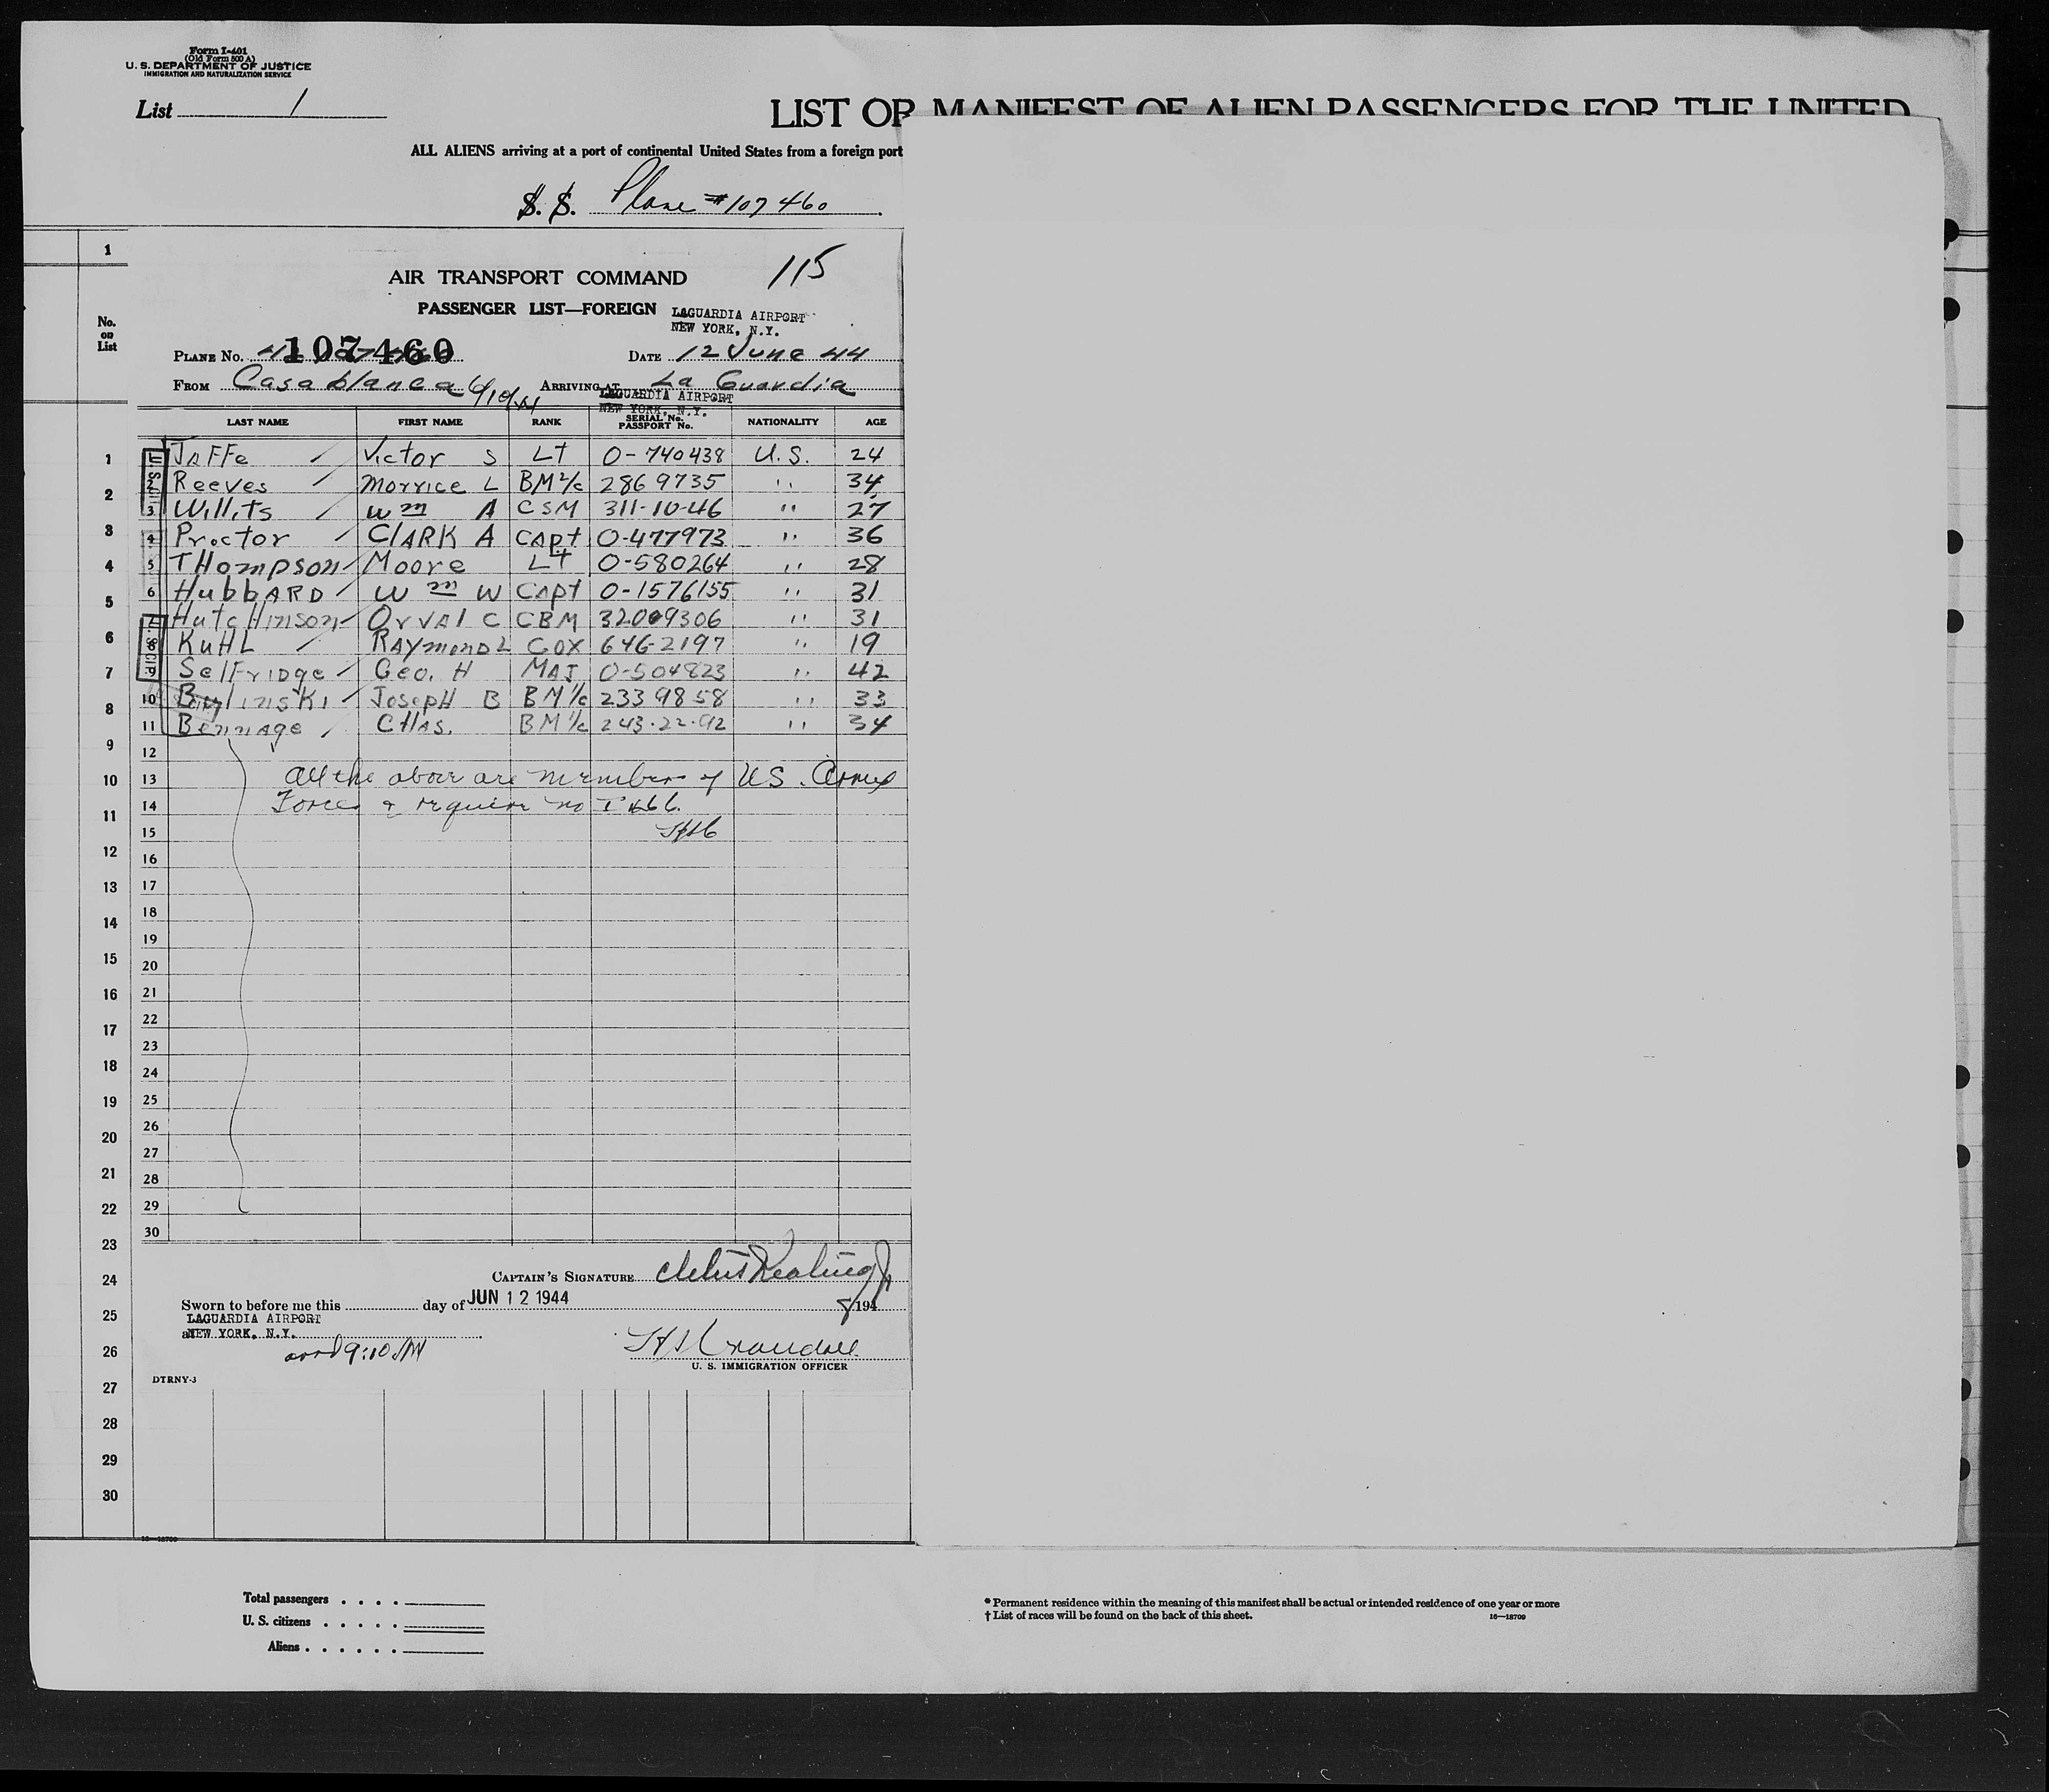 Form I-401
(Old Form 500 A)
U. S. DEPARTMENT OF JUSTICE
IMMIGRATION AND NATURALIZATION SERVICE
List 1
LIST OR MANIFEST OF ALIEN PASSENGERS FOR THE UNITED
ALL ALIENS arriving at a port of continental United States from a foreign port
S. S. Plane #107460
1
115
AIR TRANSPORT COMMAND
PASSENGER LIST—FOREIGN
LAGUARDIA AIRPORT
NEW YORK, N.Y.
No. on List
PLANE NO. 107460 DATE 12 June 44
FROM Casablanca 6/10/44 ARRIVING AT La Guardia
LAGUARDIA AIRPORT
NEW YORK, N.Y.
LAST NAME FIRST NAME RANK SERIAL No. PASSPORT No. NATIONALITY AGE
1 Jaffe Victor S Lt O-740438 U.S. 24
2 Reeves Morrice L BM2/c 2869735 " 34
3 Willits Wm A CSM 311-10-46 " 27
4 Proctor CLARK A CApt O-477973 " 36
5 THompson Moore Lt O-580264 " 28
6 HubbARD Wm W CApt O-1576155 " 31
7 HutcHinson OrvAl C CBM 32009306 " 31
8 KuHL RAymond L COX 646-2197 " 19
9 SelFridge Geo. H MAJ O-504823 " 42
10 JosepH B BM1/c 2339858 " 33
11 BennAge CHAs. BM1/c 243-22-92 " 34
12
13 All the above are members of US. Armed
14 Forces & require no I 466.
15 HSC
16
17
18
19
20
21
22
23
24
25
26
27
28
29
30
1
2
3
4
5
6
7
8
9
10
11
12
13
14
15
16
17
18
19
20
21
22
23
24
25
26
27
28
29
30
CAPTAIN'S SIGNATURE
Sworn to before me this day of JUN 12 1944 194
LAGUARDIA AIRPORT
at NEW YORK, N.Y.
arrd 9:10 AM
HSCrandall
U. S. IMMIGRATION OFFICER
DTRNY-3
16—18709
Total passengers
U. S. citizens
Aliens
* Permanent residence within the meaning of this manifest shall be actual or intended residence of one year or more
† List of races will be found on the back of this sheet. 16—18709